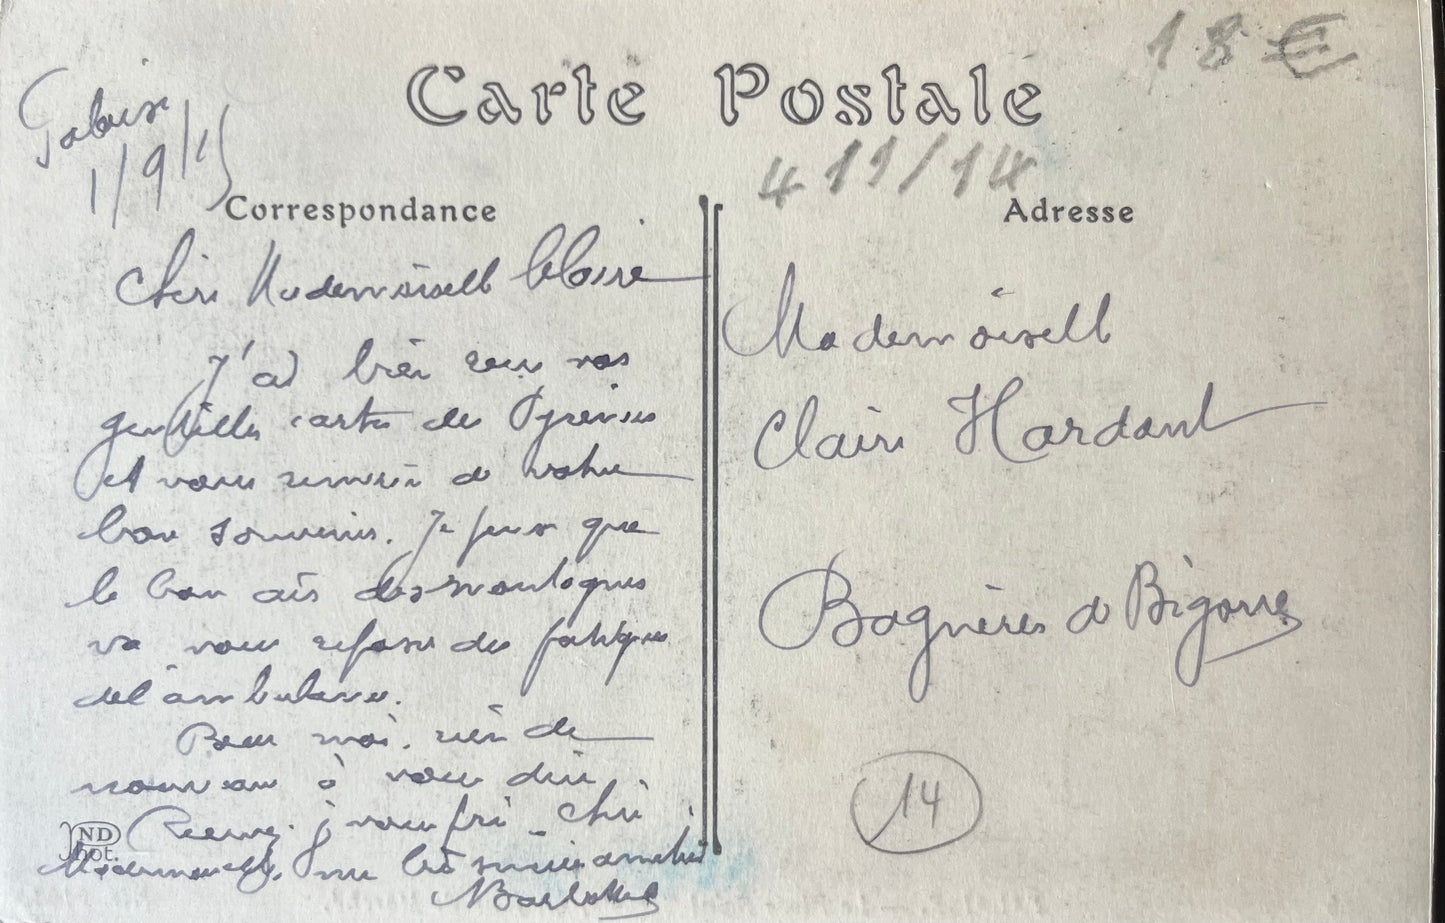 18 €
Carte Postale
Falaise
1/9/15
411/14
Correspondance
Adresse
Chère Mademoiselle Claire
J'ai bien reçu vos
gentilles cartes des Pyrénées
et vous remercie de votre
bon souvenir. Je pense que
le bon air des montagnes
va vous reposer des fatigues
de l'ambulance.
Pour moi, rien de
nouveau à vous dire.
Recevez, je vous prie, chère
Mademoiselle, me
ND
Phot.
Mademoiselle
Claire Hardant
Bagnères de Bigorre
14